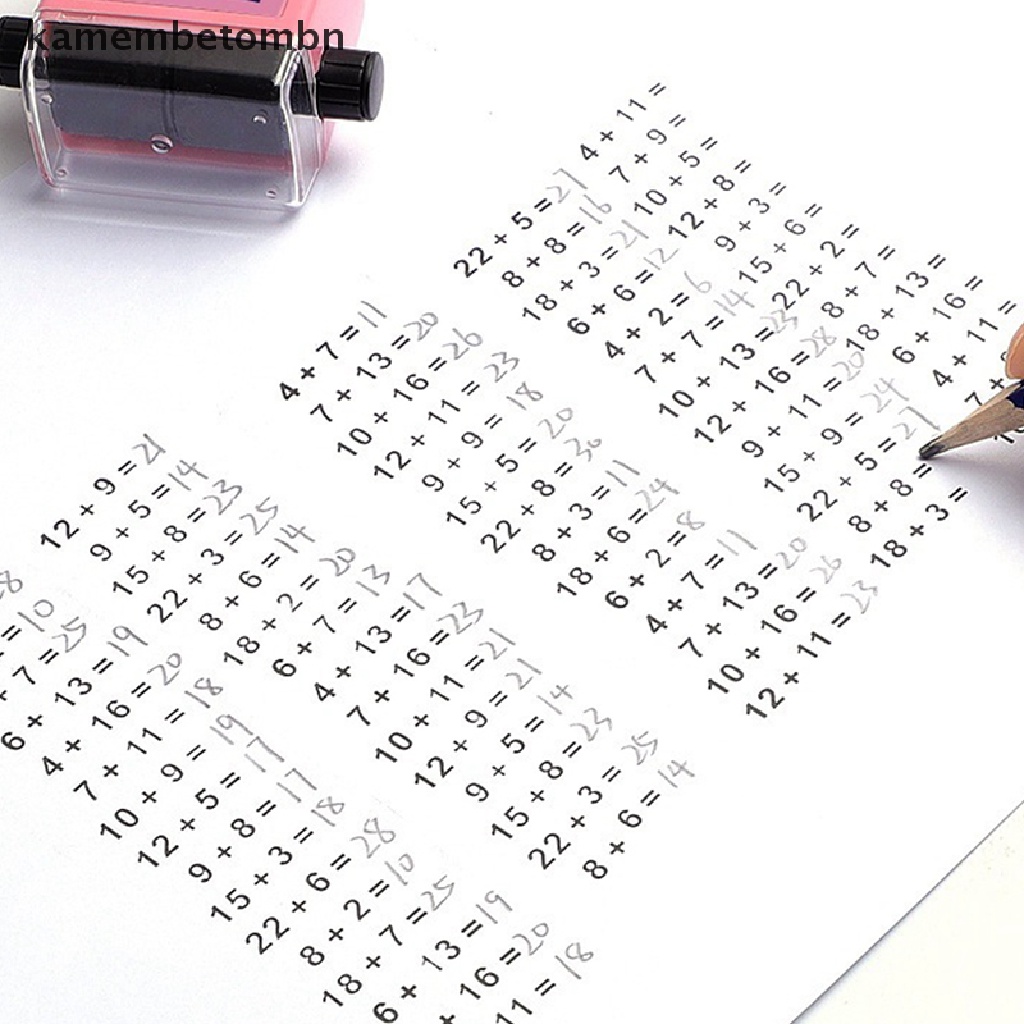 kamembetombn
= 10
+ 7 = 25
6 + 13 = 19
4 + 16 = 20
7 + 11 = 18
10 + 9 = 19
12 + 5 = 17
9 + 8 = 17
15 + 3 = 18
22 + 6 = 28
8 + 2 = 10
18 + 7 = 25
6 + 13 = 19
+ 16 = 20
11 = 18
12 + 9 = 21
9 + 5 = 14
15 + 8 = 23
22 + 3 = 25
8 + 6 = 14
18 + 2 = 20
6 + 7 = 13
4 + 13 = 17
7 + 16 = 23
10 + 11 = 21
12 + 9 = 21
9 + 5 = 14
15 + 8 = 23
22 + 3 = 25
8 + 6 = 14
4 + 7 = 11
7 + 13 = 20
10 + 16 = 26
12 + 11 = 23
9 + 9 = 18
15 + 5 = 20
22 + 8 = 30
8 + 3 = 11
18 + 6 = 24
6 + 2 = 8
4 + 7 = 11
7 + 13 = 20
10 + 16 = 26
12 + 11 = 23
22 + 5 = 27
8 + 8 = 16
18 + 3 = 21
6 + 6 = 12
4 + 2 = 6
7 + 7 = 14
10 + 13 = 23
12 + 16 = 28
9 + 11 = 20
15 + 9 = 24
22 + 5 = 27
8 + 8 =
18 + 3 =
4 + 11 =
7 + 9 =
10 + 5 =
12 + 8 =
9 + 3 =
15 + 6 =
22 + 2 =
8 + 7 =
18 + 13 =
6 + 16 =
4 + 11 =
7 +